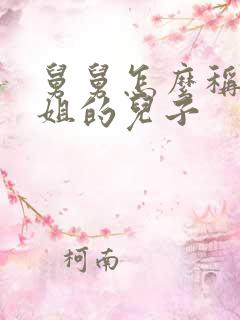 舅舅怎麼稱
姐的兒子
柯南